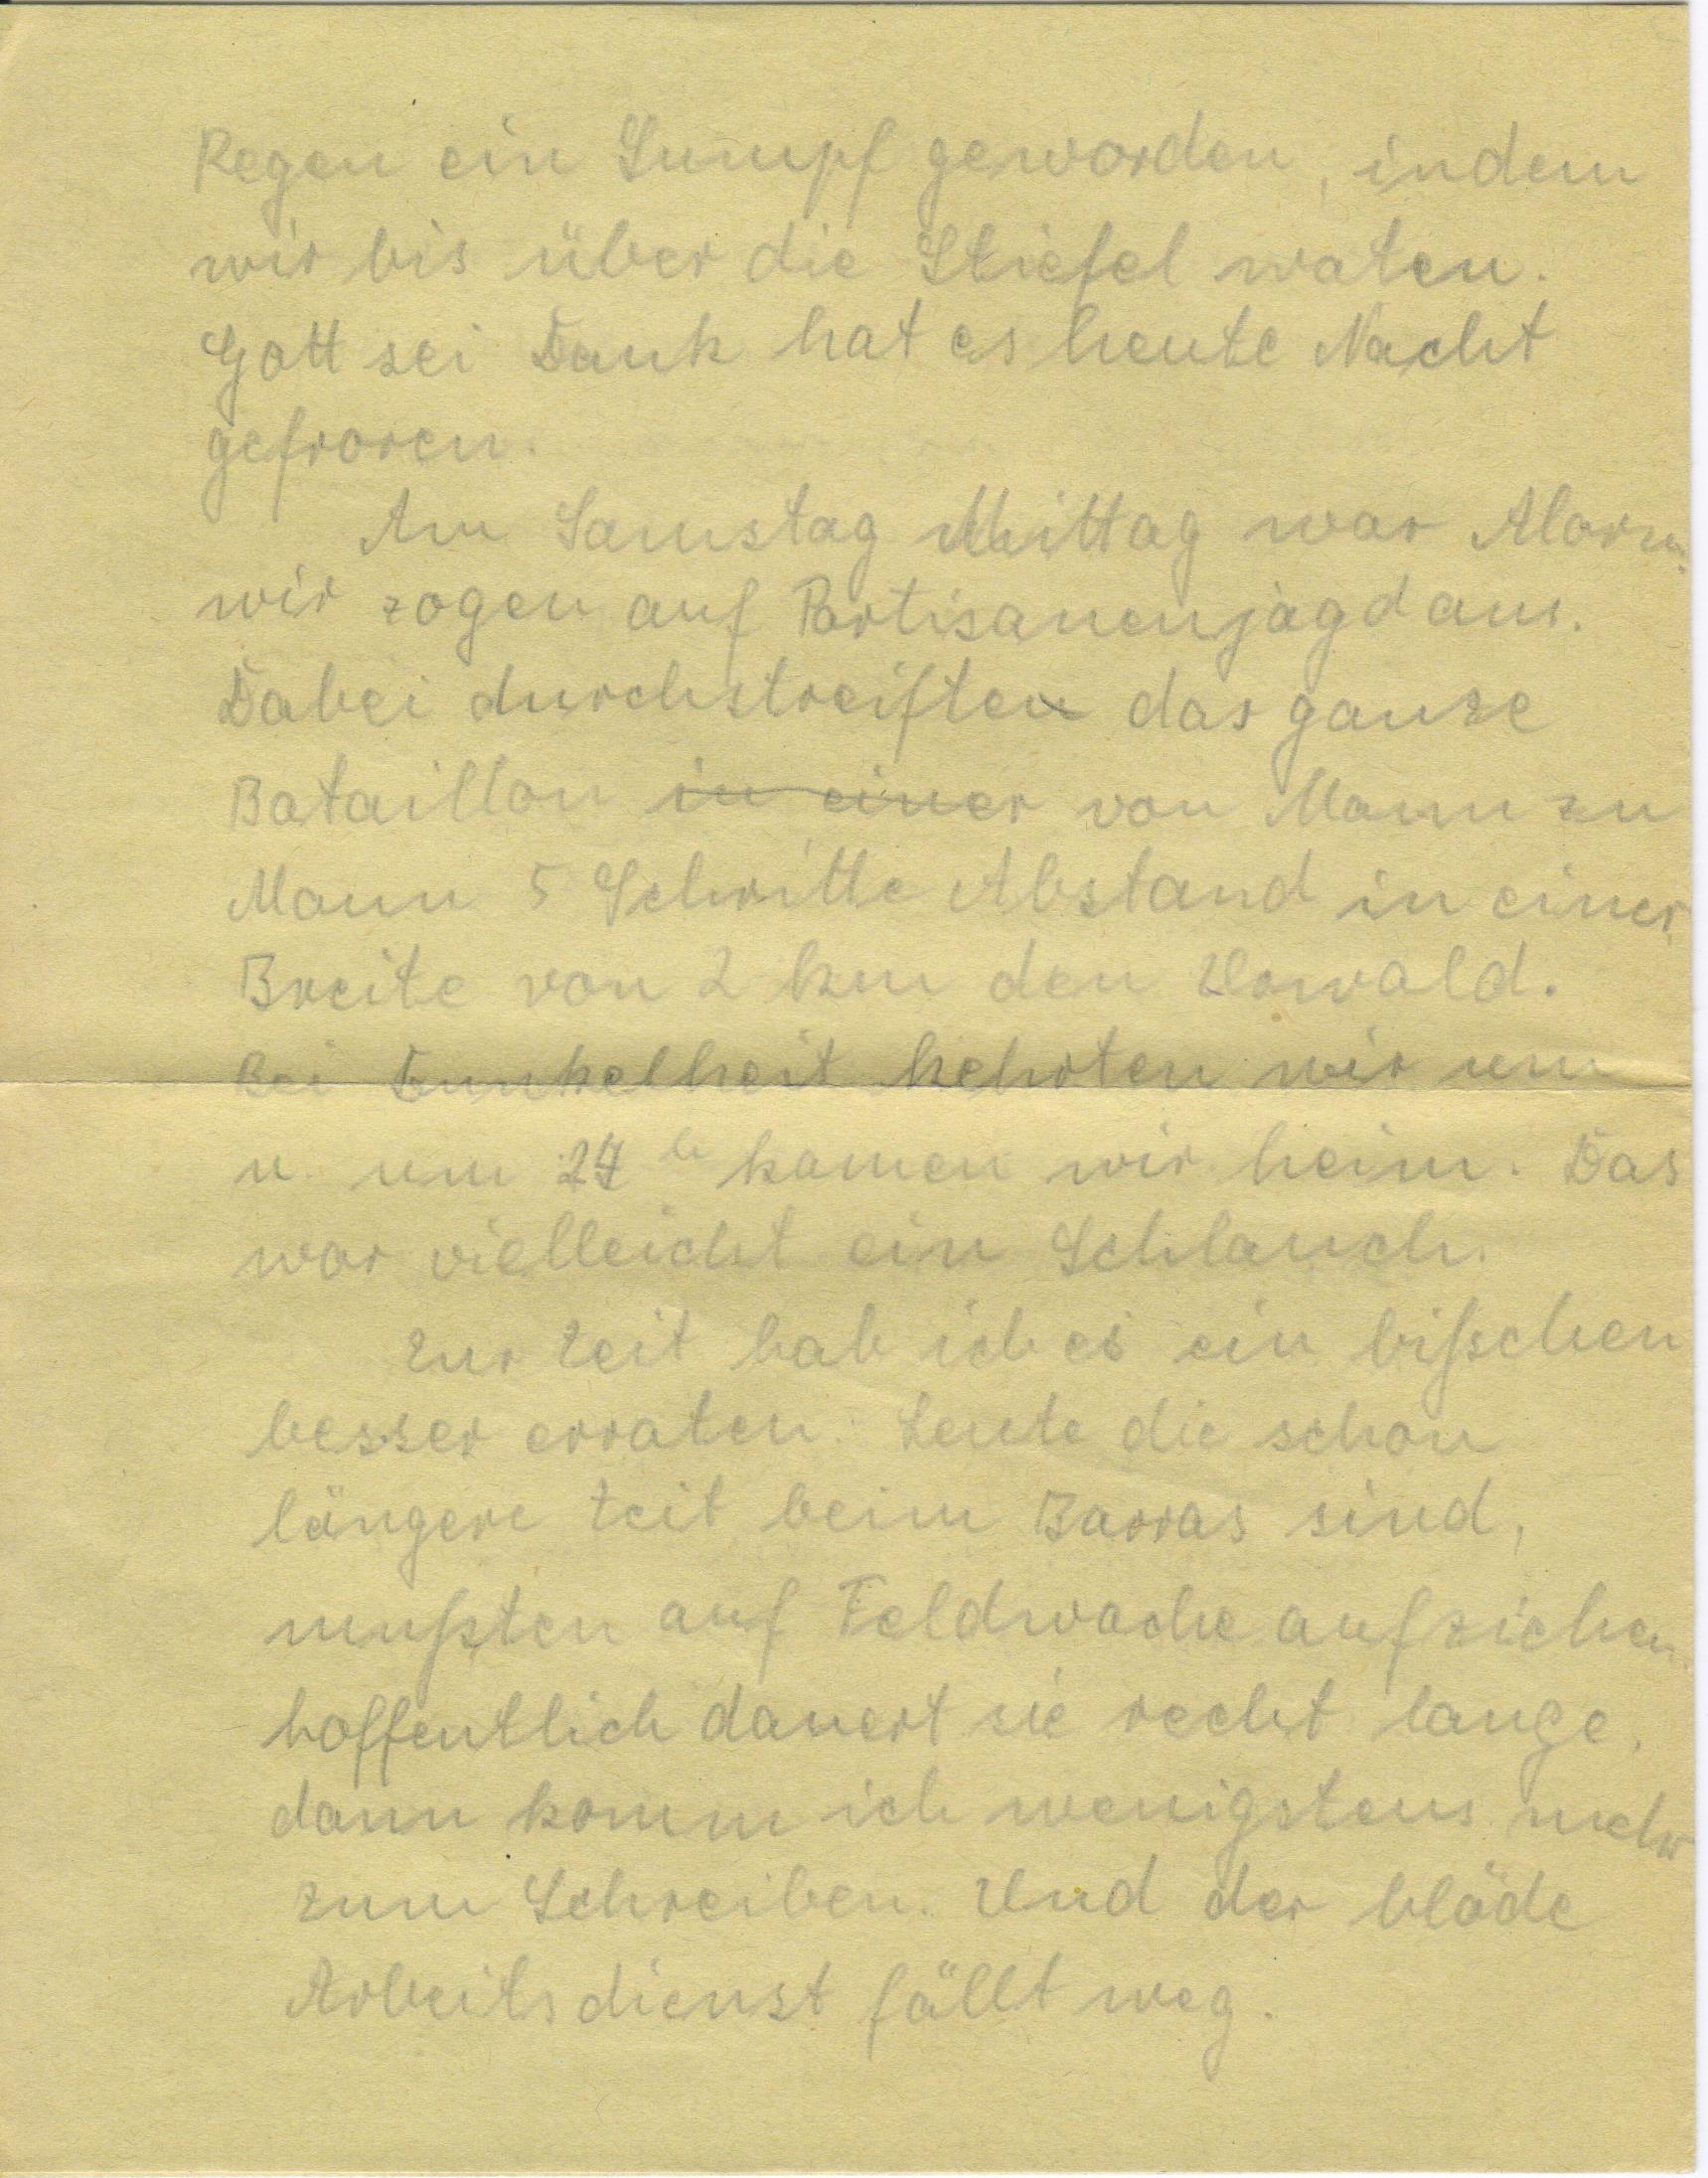 Regen ein Sumpf geworden, indem
wir bis über die Stiefel waten.
Gott sei Dank hat es heute Nacht
gefroren.
Am Samstag Mittag war Alarm.
wir zogen auf Partisanenjagd aus.
Dabei durchstreiften das ganze
Bataillon in einer von Mann zu
Mann 5 Schritte Abstand in einer
Breite von 2 km den Urwald.
Bei Dunkelheit kehrten wir um
u. um h kamen wir heim. Das
war vielleicht ein Schlauch.
Zur Zeit hab ich es ein bißchen
besser erraten. Leute die schon
längere Zeit beim Barras sind,
mußten auf Feldwache aufziehen.
hoffentlich dauert sie recht lange,
dann komm ich wenigstens mehr
zum Schreiben. Und der blöde
Arbeitsdienst fällt weg.